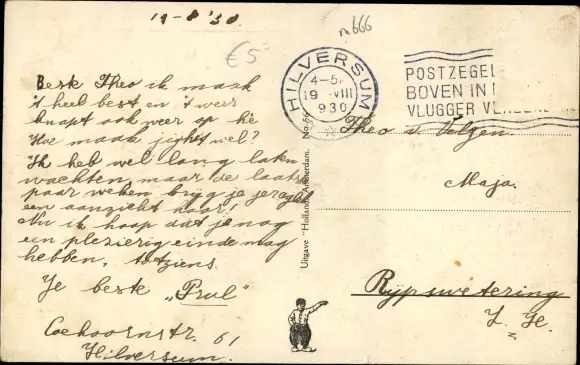 19-8 '30
no 666
€5
HILVERSUM
4-5
19 VIII
930
POSTZEGEL
BOVEN IN
VLUGGER
Beste Theo ik maak
't heel best en 't weer
knapt ook weer op hè
Hoe maak jij het wel?
Ik heb wel lang laten
wachten, maar de laatste
paar weken krijg je
een aanzicht hoor!
Nu ik hoop dat je nog
een plezierig einde mag
hebben, tot ziens
Je beste „Prul"
Coehoornstr. 61
Hilversum.
Uitgave "Holland" Amsterdam. No.
Theo v. Velzen
Maja.
Rijpswetering
Z. H.